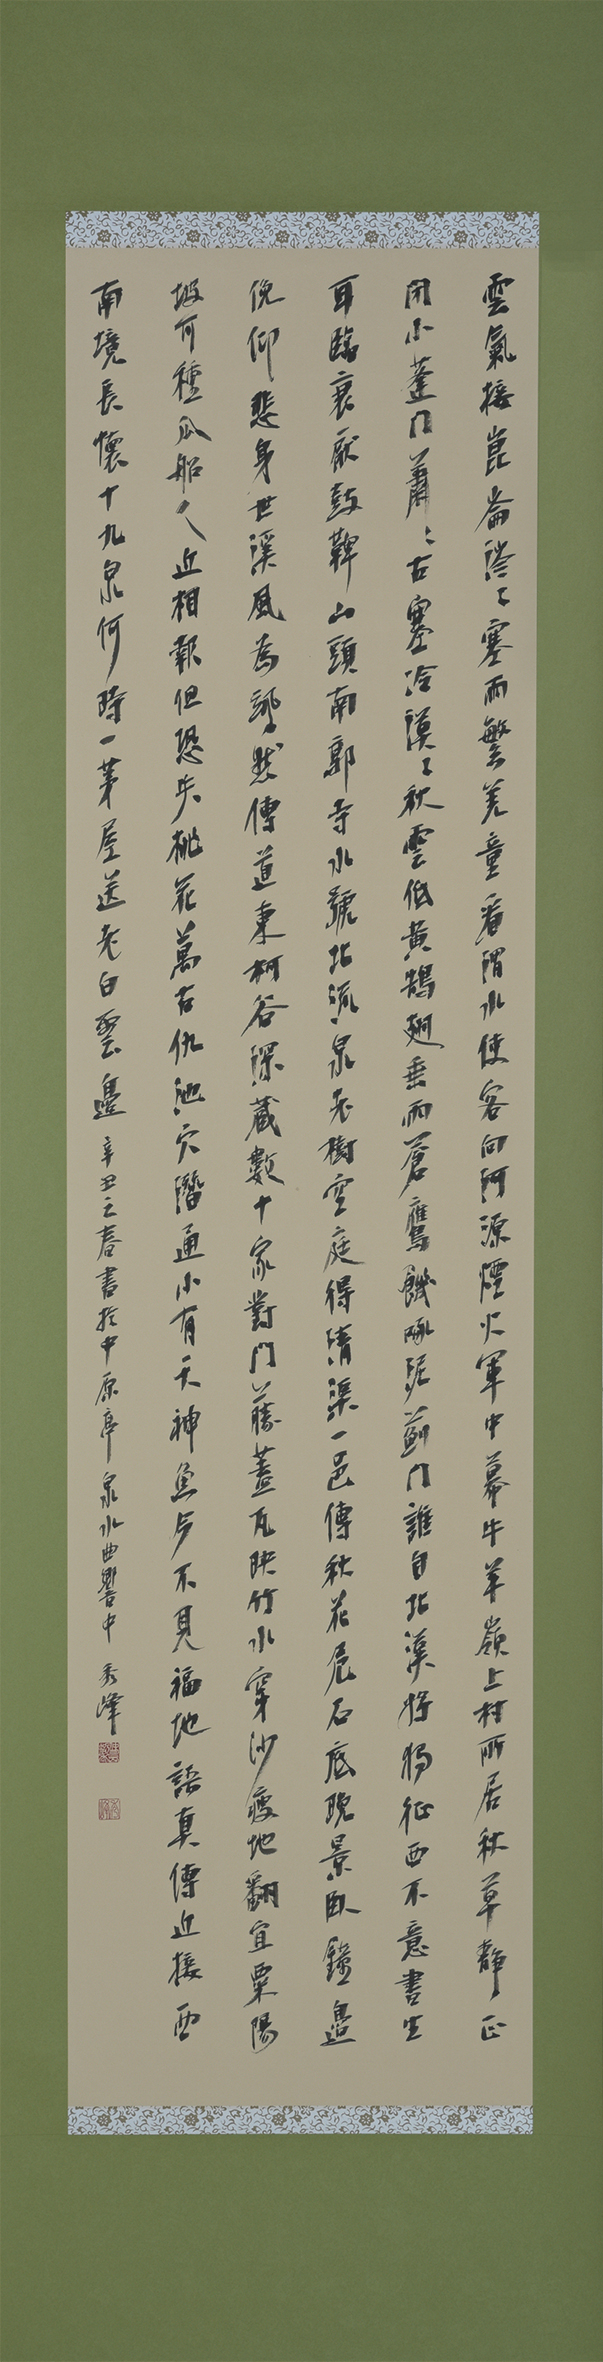 雲氣接崑崙涔々塞雨繁羌童看渭水使客向河源煙火軍中幕牛羊嶺上村所居秋草靜正
閉小蓬門蕭々古塞冷漠々秋雲低黃鵠翅垂雨蒼鷹饑啄泥薊門誰自北漢將獨征西不意書生
耳臨衰厭鼓鞞山頭南郭寺水號北流泉老樹空庭得清渠一邑傳秋花危石底晚景臥鐘邊
俛仰悲身世溪風為颯然傳道東柯谷深藏數十家對門藤蓋瓦映竹水穿沙瘦地翻宜粟陽
坡可種瓜船人近相報但恐失桃花萬古仇池穴潛通小有天神魚今不見福地語真傳近接西
南境長懷十九泉何時一茅屋送老白雲邊 辛丑之春書於中原亭泉水曲響中 秀峰